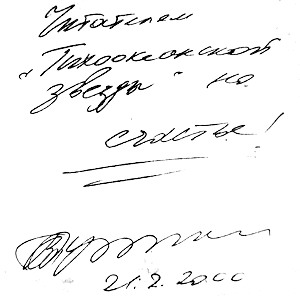 Читателям
"Тихоокеанской
звезды" на
счастье!
21.2.2000